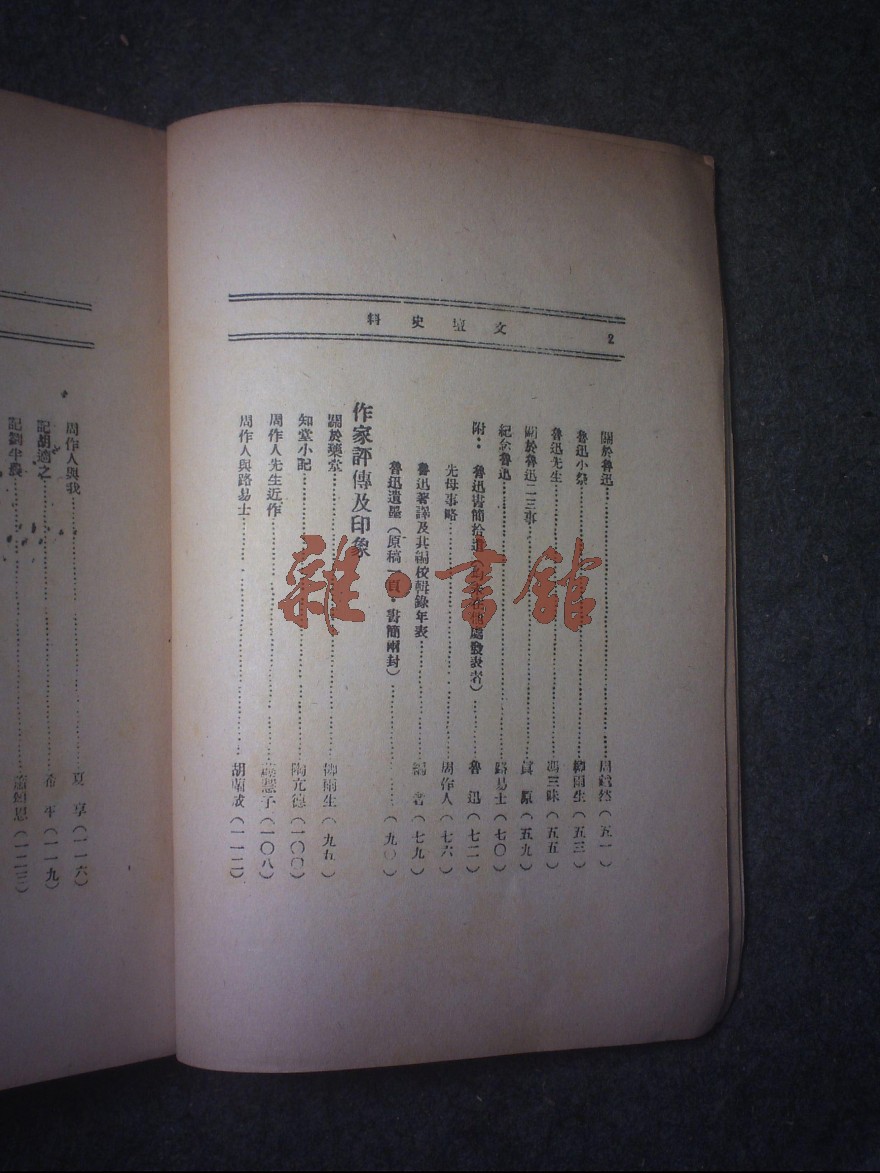 文壇史料
2
關於魯迅……周越然(五一)
魯迅小祭……柳雨生(五三)
魯迅先生……馮三昧(五五)
關於魯迅二三事……真原(五九)
紀念魯迅……路易士(七〇)
附：魯迅書簡拾遺 處發表者)……魯迅(七二)
先母事略……周作人(七六)
魯迅著譯及其編校輯錄年表……編者(七九)
魯迅遺墨(原稿一頁·書簡兩封)……(九〇)
作家評傳及印象
關於藥堂……柳雨生(九五)
知堂小記……陶亢德(一〇〇)
周作人先生近作……(一〇八)
周作人與路易士……胡蘭成(一一二)
周作人與我……夏孳(一一六)
記胡適之……希平(一一九)
記劉半農……(一二三)
雜·書館